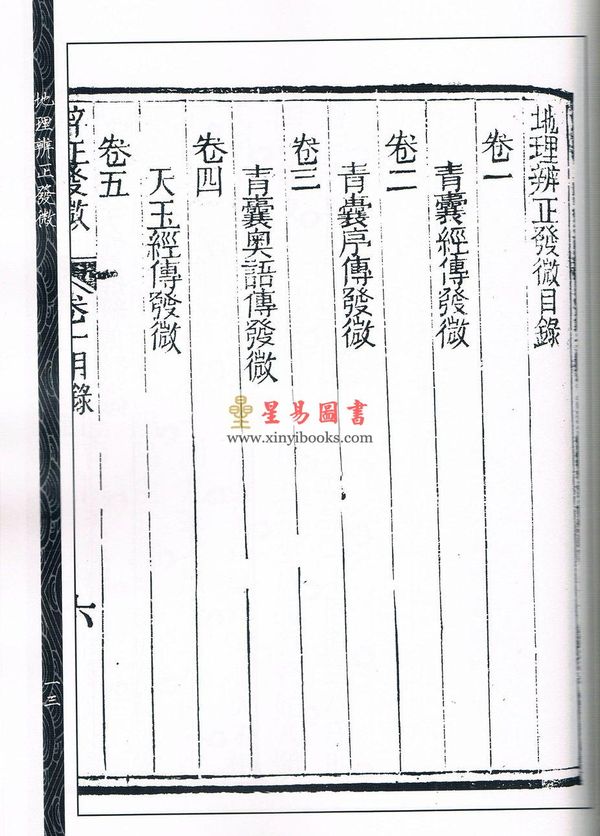 地理辨正發微目錄
卷一
青囊經傳發微
卷二
青囊序傳發微
卷三
青囊奧語傳發微
卷四
天玉經傳發微
卷五
正發微 卷一目錄
六
地理辨正發微
一三
星易圖書
www.xinyibooks.com